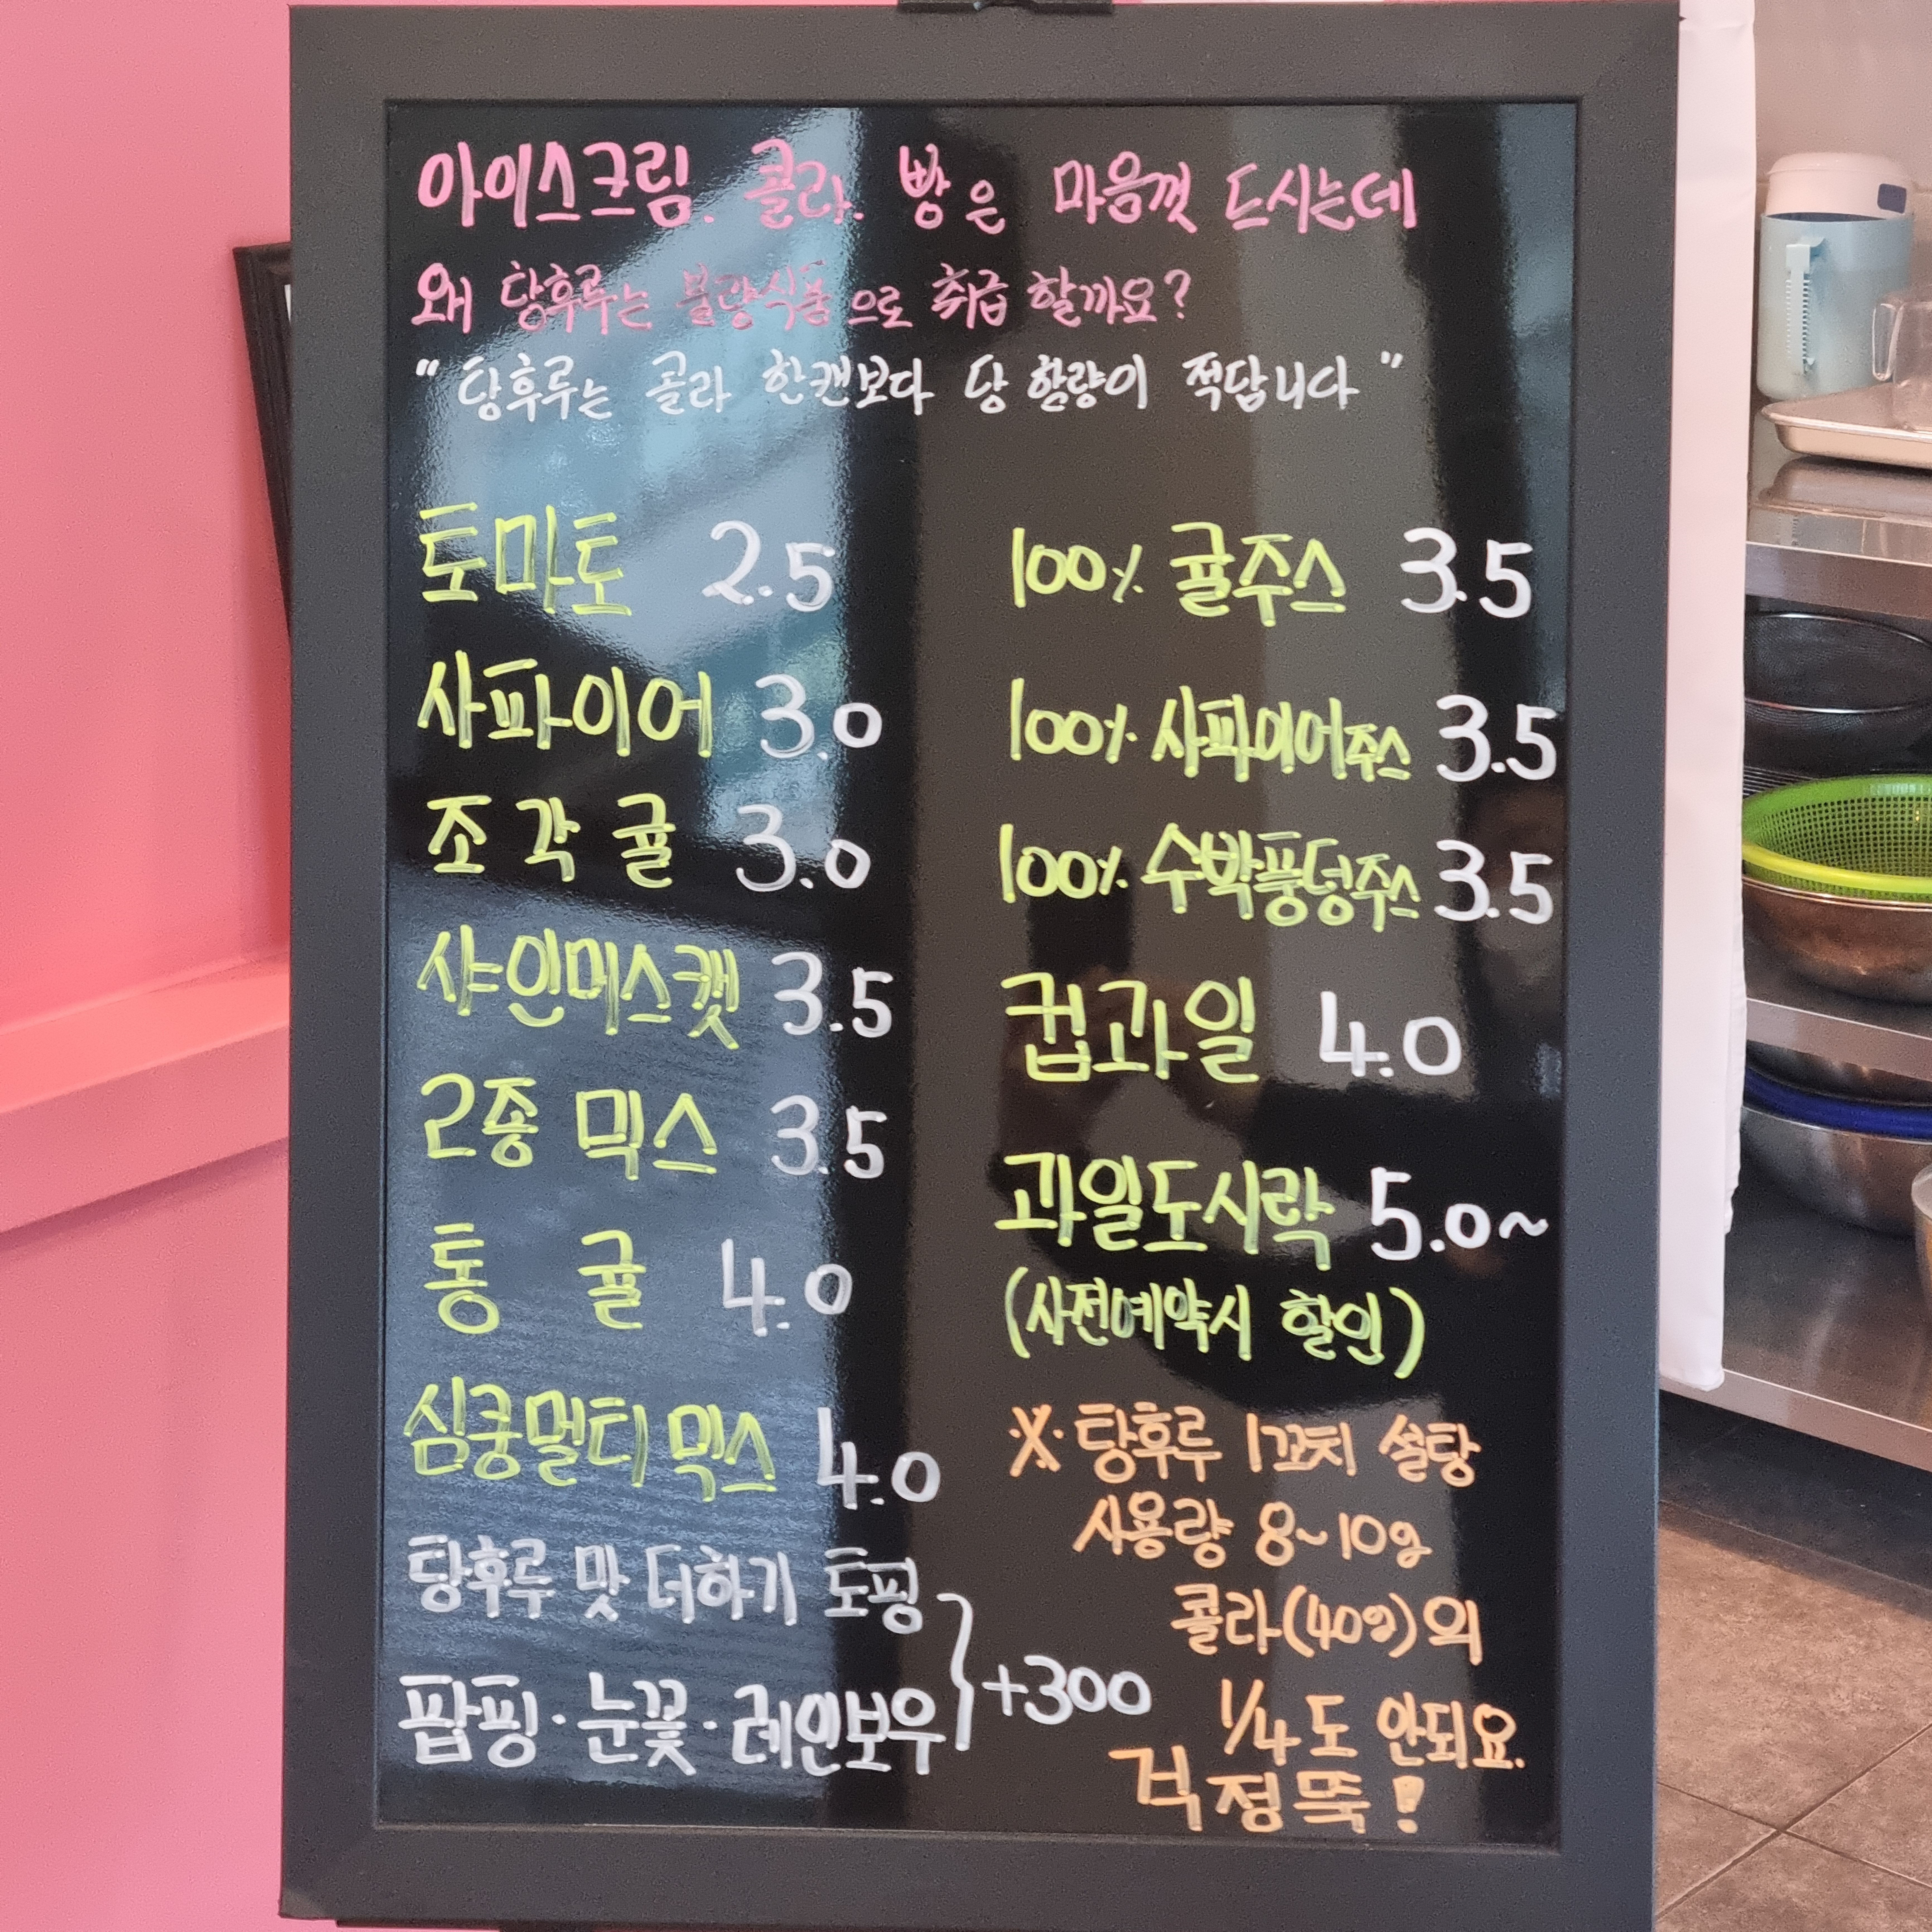 아이스크림. 콜라. 빵은 마음껏 드시는데
왜 탕후루는 불량식품으로 취급 할까요?
" 탕후루는 콜라 한캔보다 당 함량이 적답니다 "
토마토 2.5
사파이어 3.0
조각귤 3.0
샤인머스켓 3.5
2종 믹스 3.5
통 귤 4.0
심쿵멀티믹스 4.0
탕후루 맛 더하기 토핑
팝핑·눈꽃·레인보우 } +300
100% 귤주스 3.5
100% 사파이어주스 3.5
100% 수박퐁덩주스 3.5
컵과일 4.0
과일도시락 5.0~
(사전예약시 할인)
※ 탕후루 1꼬치 설탕
사용량 8~10g
콜라(40g)의
1/4도 안되요.
걱정뚝!